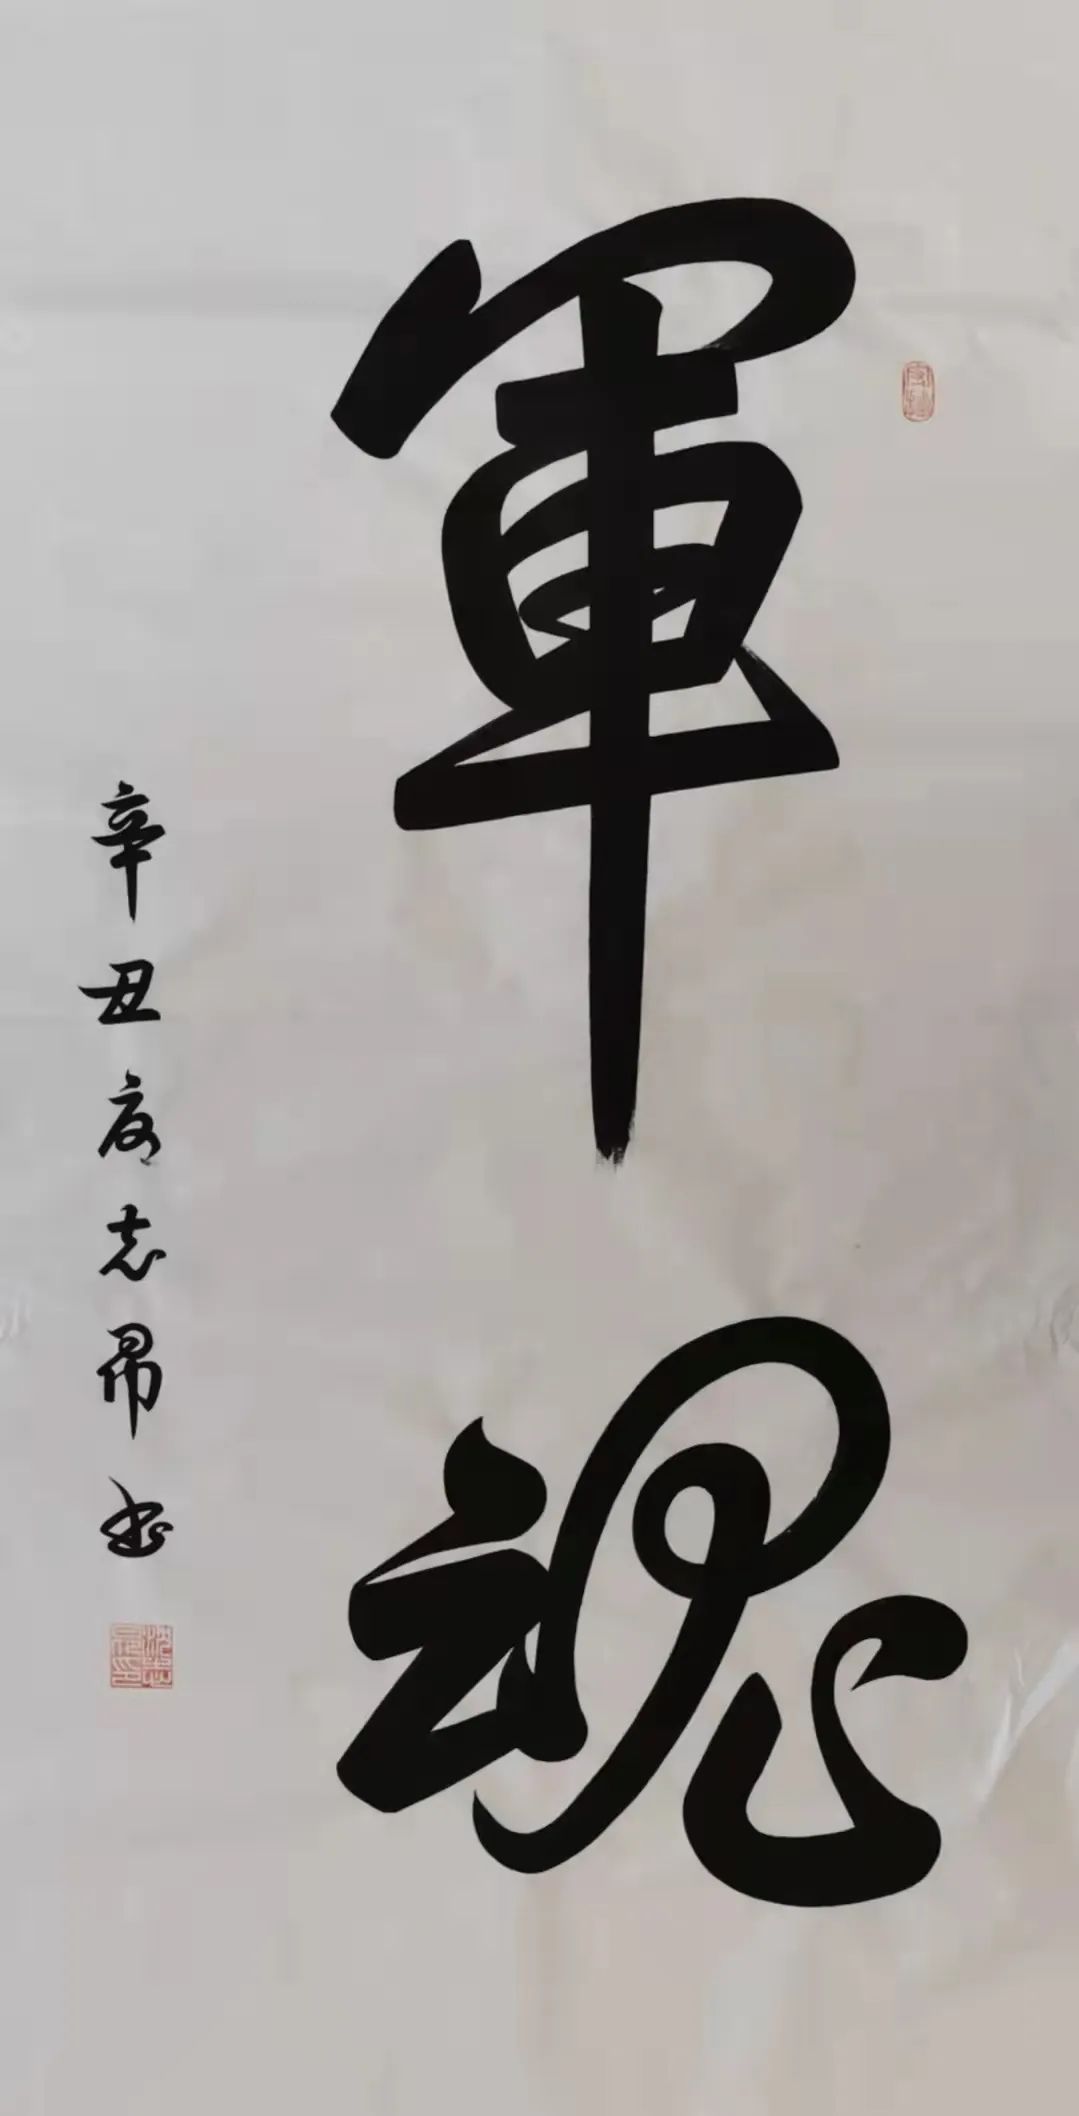 軍魂
辛丑夏志昂書